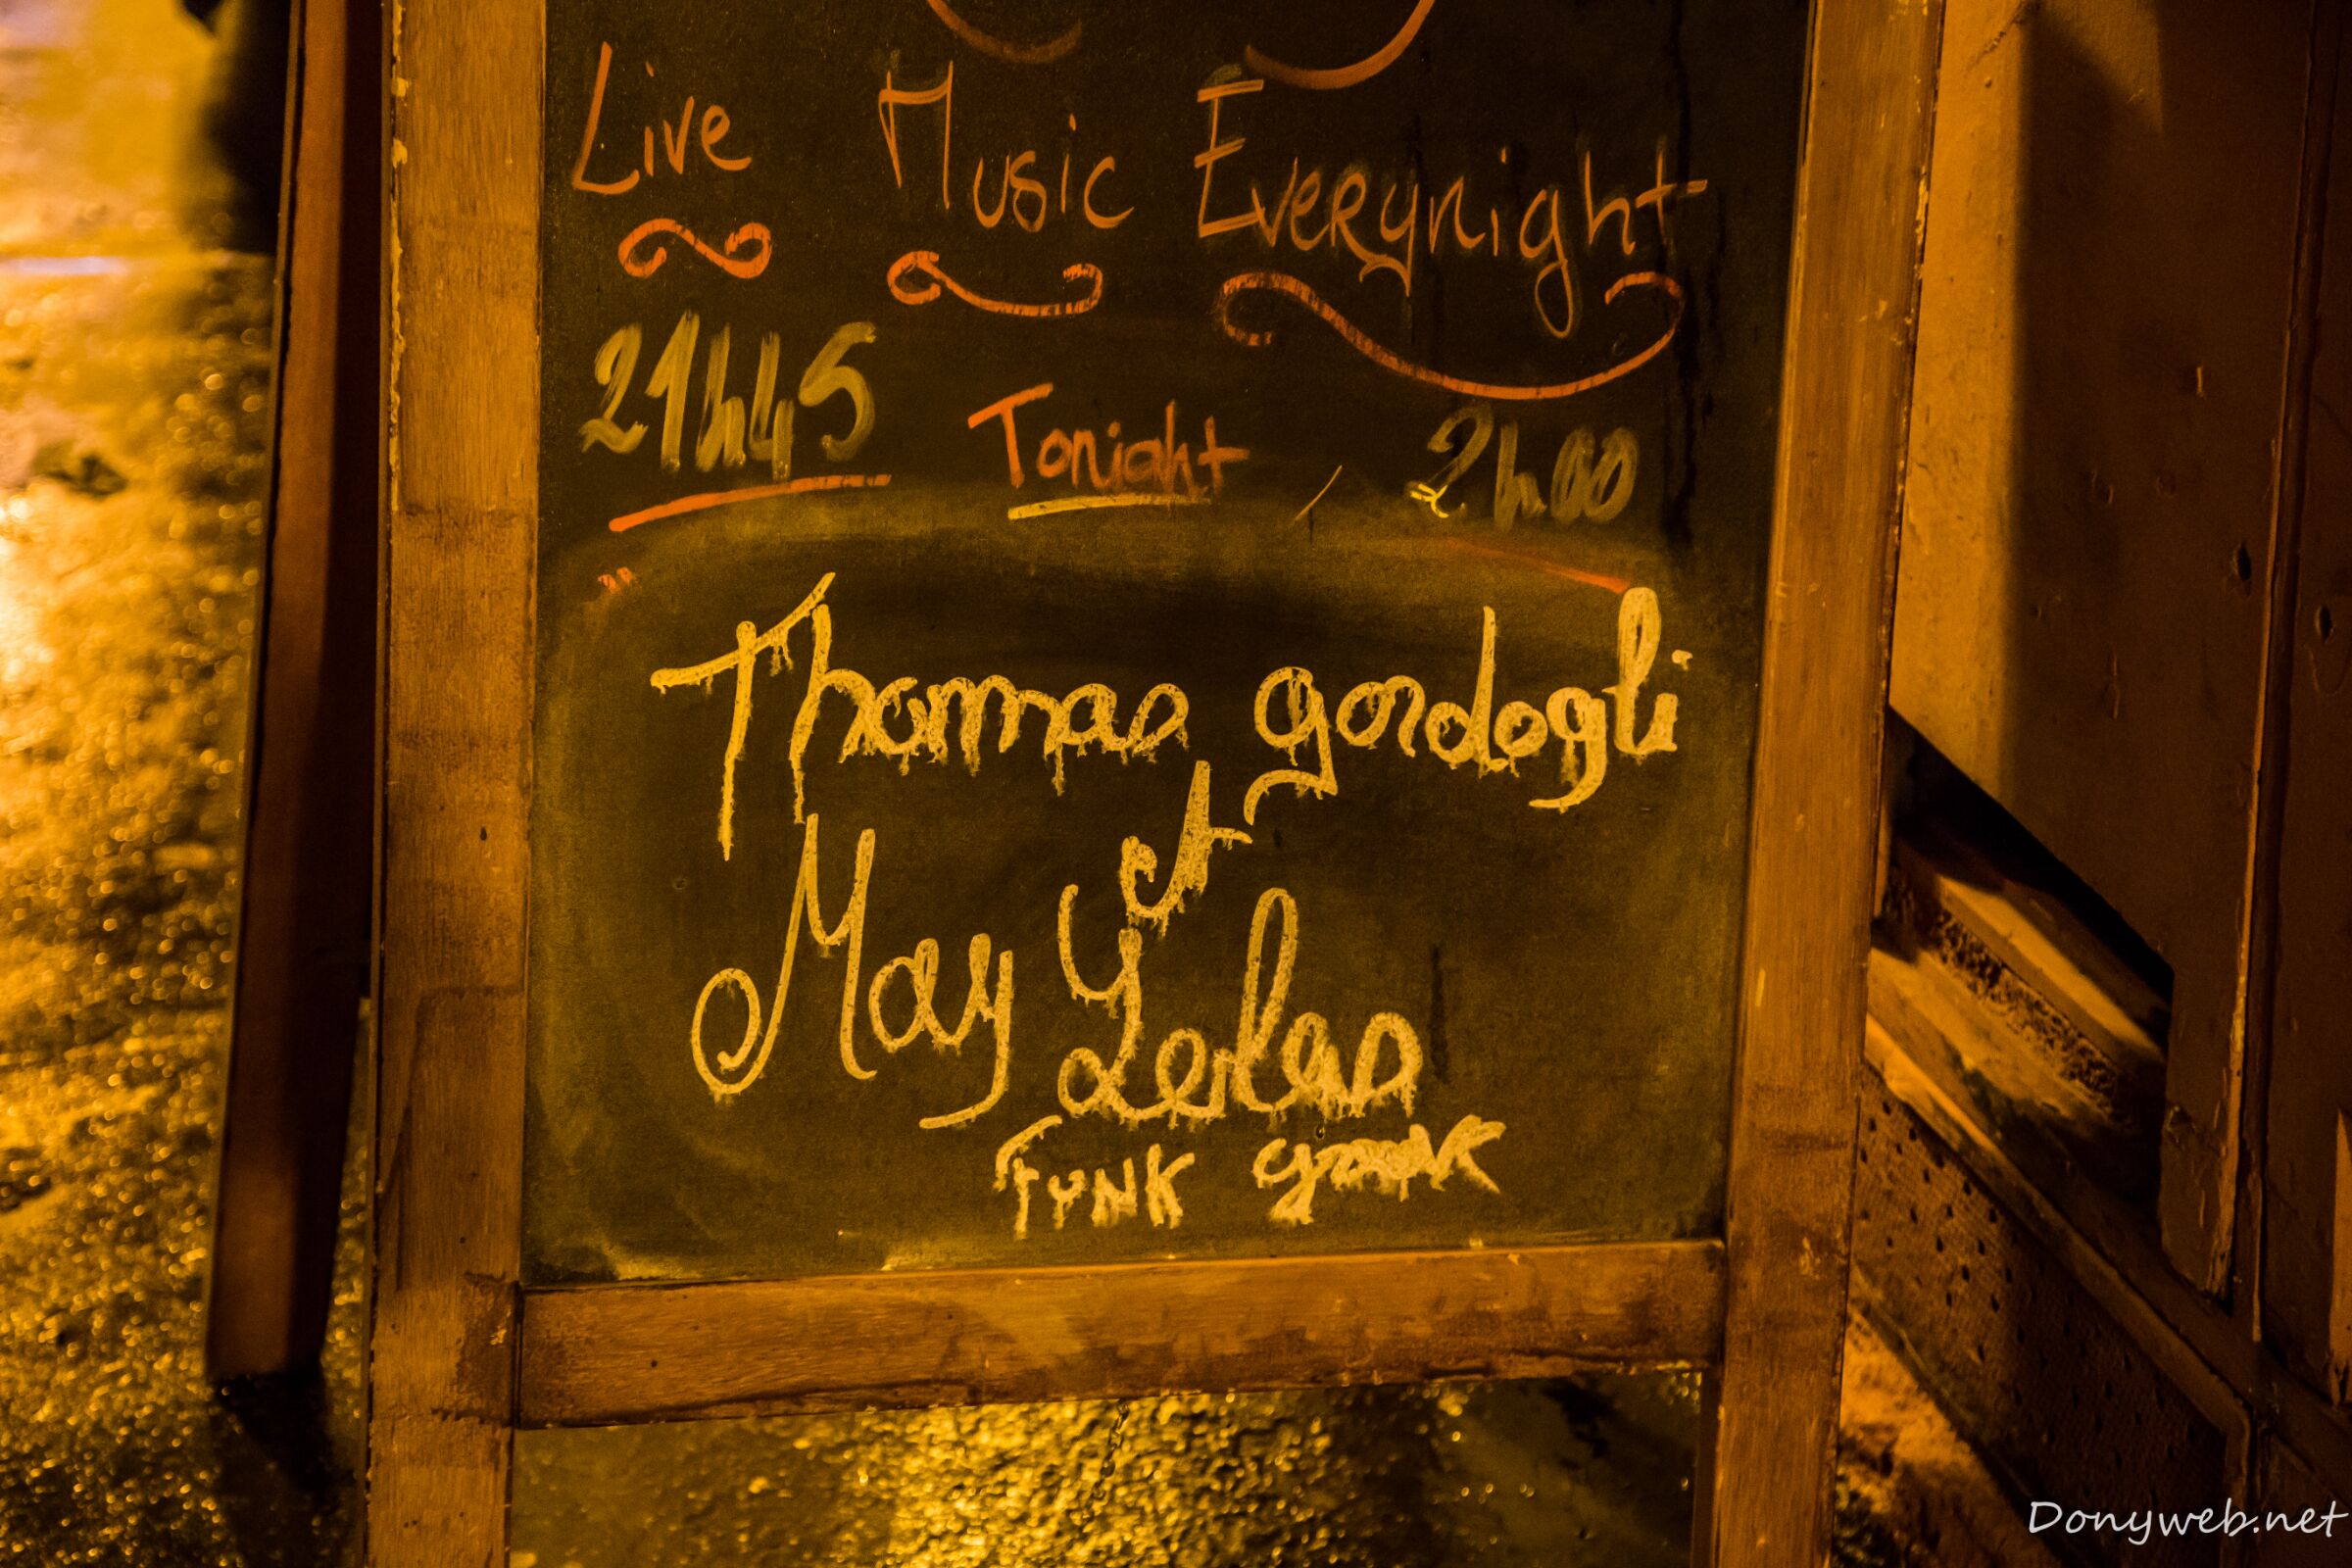 Live Music Everynight
21h45 Tonight, 2h00
Thomas gordogli
et
May Y
Funk
Donyweb.net